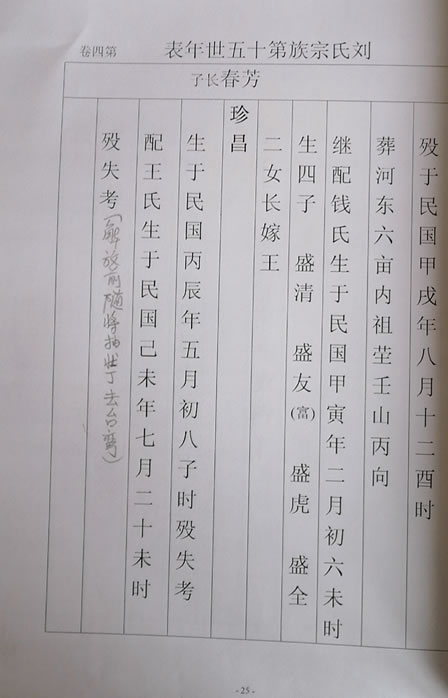 刘氏宗族第十五世年表
第四卷
芳春长子
殁于民国甲戌年八月十二酉时
葬河东六亩内祖茔壬山丙向
继配钱氏生于民国甲寅年二月初六未时
生四子 盛清 盛友(富) 盛虎 盛全
二女长嫁王
珍昌
生于民国丙辰年五月初八子时殁失考
配王氏生于民国己未年七月二十未时
殁失考(解放前随蒋抽壮丁去台弯)
- 25 -